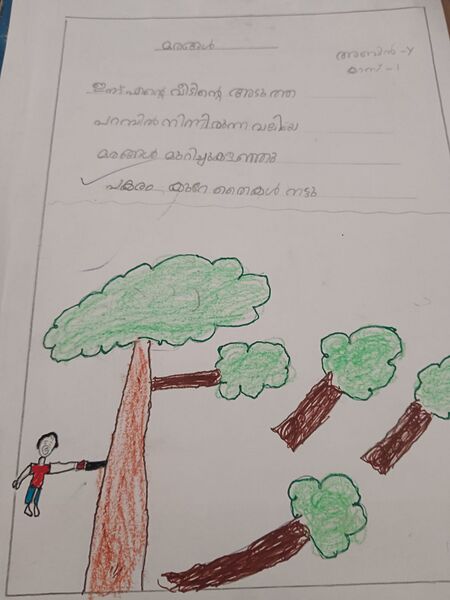 മരങ്ങൾ
അബിൻ - Y
ക്ലാസ് - 1
ഇന്ന് എന്റെ വീടിന്റെ അടുത്ത
പറമ്പിൽ നിന്നിരുന്ന വലിയ
മരങ്ങൾ മുറിച്ചുകളഞ്ഞു
പകരം കുറേ തൈകൾ നട്ടു